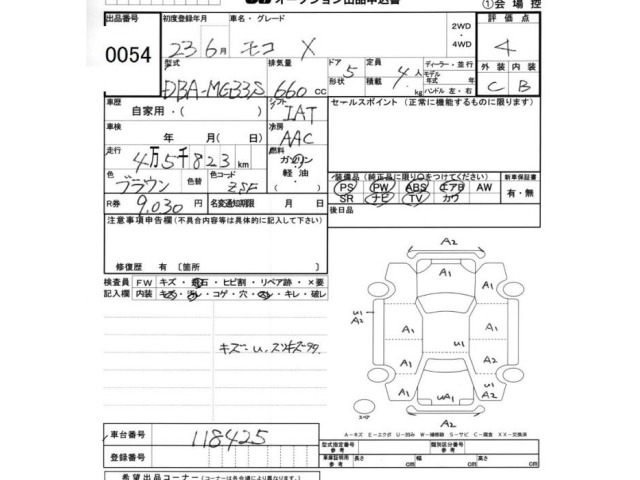 オークション出品申込書
①会場控
出品番号
0054
初度登録年月
23 6月
車名・グレード
モコ X
2WD
・
4WD
評価点
4
型式
DBA-MG33S
排気量
660 cc
ドア
形状
5
定員
積載
4人
kg
ディーラー・並行
モデル
年式 年
ハンドル 左・右
外装
内装
C
B
車歴
自家用・( )
シフト
IAT
セールスポイント（正常に機能するものに限ります）
車検
年 月( 日)
冷房
AAC
走行
4万5千823km
燃料
ガソリン
軽油・
色
ブラウン
色替
色コード
ZSF
装備品（純正品に限り○をつけてください）
PS PW ABS エアB AW
SR ナビ TV カワ
新車保証書
有・無
R券
9,030円
名変通知期限 月 日
後日品
注意事項申告欄（不具合内容等は具体的に記入して下さい）
修復歴 有〔箇所 〕
検査員
記入欄
FW キズ・飛石・ヒビ割・リペア跡・×要
内装 キズ・汚レ・コゲ・穴・スレ・キレ・破レ
A2
A1
A1
A1
U1
A2
U1
A1
A1
A1
UA1
A2
A－キズ E－エクボ U－凹み W－補修跡 S－サビ C－腐食 XX－交換済
車台番号
118425
登録番号
型式指定番号
参考
類別区分番号
参考
車庫証明用
参考
長さ cm
幅 cm
高さ cm
希望出品コーナー（各会場により異なります）